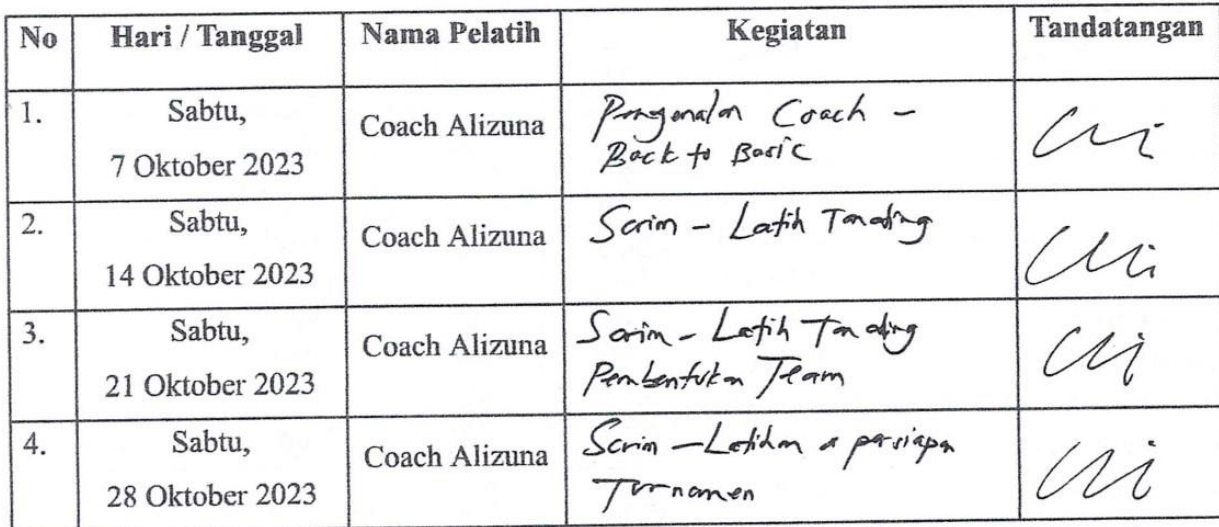 No Hari / Tanggal Nama Pelatih Kegiatan Tandatangan
1. Sabtu,
7 Oktober 2023
Coach Alizuna
Pengenalan Coach -
Back to Basic
2. Sabtu,
14 Oktober 2023
Coach Alizuna
Scrim - Latih Tanding
3. Sabtu,
21 Oktober 2023
Coach Alizuna
Scrim - Latih Tanding
Pembentukan Team
4. Sabtu,
28 Oktober 2023
Coach Alizuna
Scrim - Latihan persiapan
Turnamen